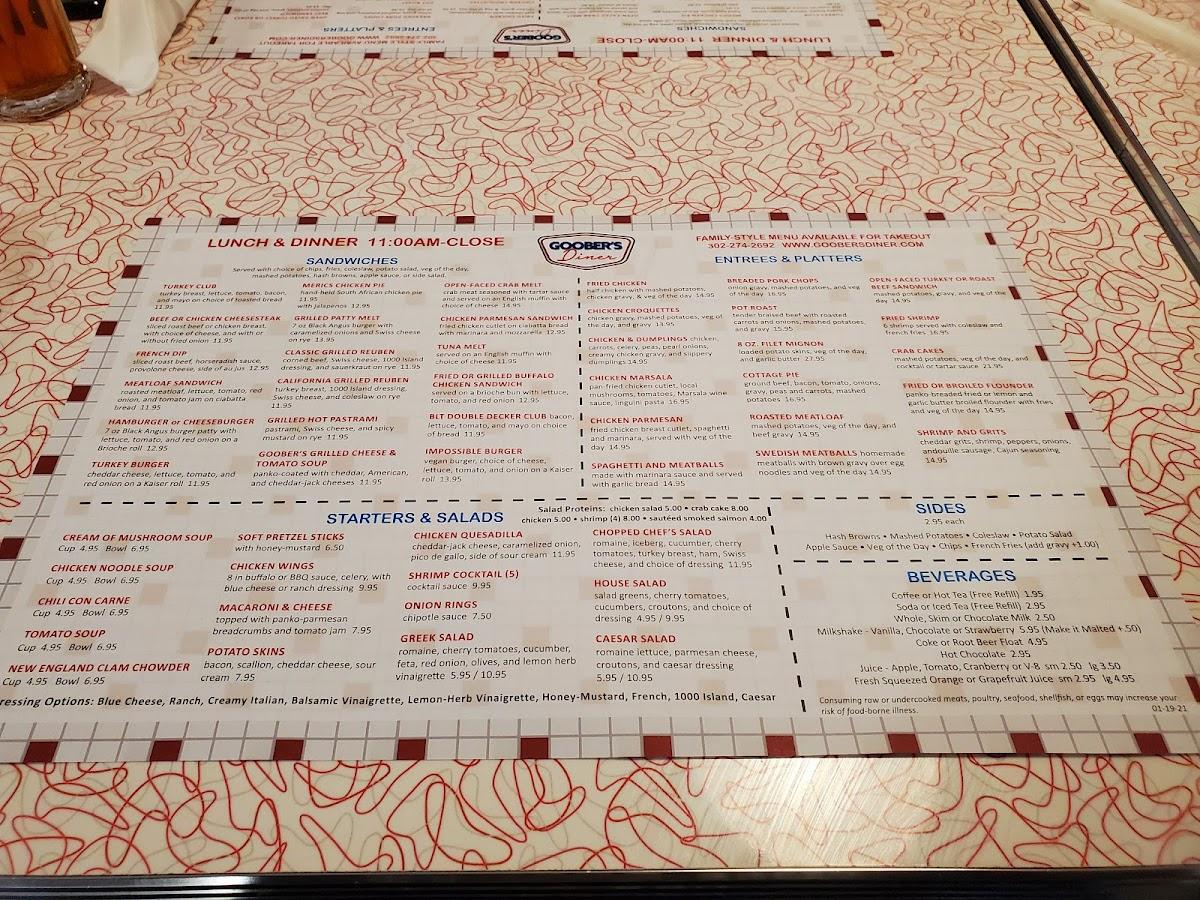 LUNCH & DINNER 11:00AM-CLOSE
GOOBER'S
Diner
FAMILY-STYLE MENU AVAILABLE FOR TAKEOUT
302-274-2692 WWW.GOOBERSDINER.COM
SANDWICHES
Served with choice of chips, fries, coleslaw, potato salad, veg of the day,
mashed potatoes, hash browns, apple sauce, or side salad.
TURKEY CLUB
turkey breast, lettuce, tomato, bacon,
and mayo on choice of toasted bread
11.95
BEEF OR CHICKEN CHEESESTEAK
sliced roast beef or chicken breast,
with choice of cheese, and with or
without fried onion 11.95
FRENCH DIP
sliced roast beef, horseradish sauce,
provolone cheese, side of au jus 12.95
MEATLOAF SANDWICH
roasted meatloaf, lettuce, tomato, red
onion, and tomato jam on ciabatta
bread 11.95
HAMBURGER or CHEESEBURGER
7 oz Black Angus burger patty with
lettuce, tomato, and red onion on a
Brioche roll 12.95
TURKEY BURGER
cheddar cheese, lettuce, tomato, and
red onion on a Kaiser roll 11.95
MERICS CHICKEN PIE
hand-held South African chicken pie
11.95
with jalapenos 12.95
GRILLED PATTY MELT
7 oz Black Angus burger with
caramelized onions and Swiss cheese
on rye 13.95
CLASSIC GRILLED REUBEN
corned beef, Swiss cheese, 1000 Island
dressing, and sauerkraut on rye 11.95
CALIFORNIA GRILLED REUBEN
turkey breast, 1000 Island dressing,
Swiss cheese, and coleslaw on rye
11.95
GRILLED HOT PASTRAMI
pastrami, Swiss cheese, and spicy
mustard on rye 11.95
GOOBER'S GRILLED CHEESE &
TOMATO SOUP
panko-coated with cheddar, American,
and cheddar-jack cheeses 11.95
OPEN-FACED CRAB MELT
crab meat seasoned with tartar sauce
and served on an English muffin with
choice of cheese 14.95
CHICKEN PARMESAN SANDWICH
fried chicken cutlet on ciabatta bread
with marinara and mozzarella 12.95
TUNA MELT
served on an English muffin with
choice of cheese 11.95
FRIED OR GRILLED BUFFALO
CHICKEN SANDWICH
served on a brioche bun with lettuce,
tomato, and red onion 12.95
BLT DOUBLE DECKER CLUB bacon,
lettuce, tomato, and mayo on choice
of bread 11.95
IMPOSSIBLE BURGER
vegan burger, choice of cheese,
lettuce, tomato, and onion on a Kaiser
roll 13.95
ENTREES & PLATTERS
FRIED CHICKEN
half chicken with mashed potatoes,
chicken gravy, & veg of the day 14.95
CHICKEN CROQUETTES
chicken gravy, mashed potatoes, veg of
the day, and gravy 13.95
CHICKEN & DUMPLINGS chicken,
carrots, celery, peas, pearl onions,
creamy chicken gravy, and slippery
dumplings 14.95
CHICKEN MARSALA
pan fried chicken cutlet, local
mushrooms, tomatoes, Marsala wine
sauce, linguini pasta 16.95
CHICKEN PARMESAN
fried chicken breast cutlet, spaghetti
and marinara, served with veg of the
day 14.95
SPAGHETTI AND MEATBALLS
made with marinara sauce and served
with garlic bread 14.95
BREADED PORK CHOPS
onion gravy, mashed potatoes, and veg
of the day 16.95
POT ROAST
tender braised beef with roasted
carrots and onions, mashed potatoes,
and gravy 15.95
8 OZ. FILET MIGNON
loaded potato skins, veg of the day,
and garlic butter 27.95
COTTAGE PIE
ground beef, bacon, tomato, onions,
gravy, peas and carrots, mashed
potatoes 16.95
ROASTED MEATLOAF
mashed potatoes, veg of the day, and
beef gravy 14.95
SWEDISH MEATBALLS homemade
meatballs with brown gravy over egg
noodles and veg of the day 14.95
OPEN-FACED TURKEY OR ROAST
BEEF SANDWICH
mashed potatoes, gravy, and veg of the
day 14.95
FRIED SHRIMP
6 shrimp served with coleslaw and
french fries 16.95
CRAB CAKES
mashed potatoes, veg of the day, and
cocktail or tartar sauce 21.95
FRIED OR BROILED FLOUNDER
panko-breaded fried or lemon and
garlic butter broiled flounder with fries
and veg of the day 14.95
SHRIMP AND GRITS
cheddar grits, shrimp, peppers, onions,
andouille sausage, Cajun seasoning
14.95
STARTERS & SALADS
Salad Proteins: chicken salad 5.00 • crab cake 8.00
chicken 5.00 • shrimp (4) 8.00 • sautéed smoked salmon 4.00
CREAM OF MUSHROOM SOUP
Cup 4.95 Bowl 6.95
CHICKEN NOODLE SOUP
Cup 4.95 Bowl 6.95
CHILI CON CARNE
Cup 4.95 Bowl 6.95
TOMATO SOUP
Cup 4.95 Bowl 6.95
NEW ENGLAND CLAM CHOWDER
Cup 4.95 Bowl 6.95
SOFT PRETZEL STICKS
with honey-mustard 6.50
CHICKEN WINGS
8 in buffalo or BBQ sauce, celery, with
blue cheese or ranch dressing 9.95
MACARONI & CHEESE
topped with panko-parmesan
breadcrumbs and tomato jam 7.95
POTATO SKINS
bacon, scallion, cheddar cheese, sour
cream 7.95
CHICKEN QUESADILLA
cheddar-jack cheese, caramelized onion,
pico de gallo, side of sour cream 11.95
SHRIMP COCKTAIL (5)
cocktail sauce 9.95
ONION RINGS
chipotle sauce 7.50
GREEK SALAD
romaine, cherry tomatoes, cucumber,
feta, red onion, olives, and lemon herb
vinaigrette 5.95 / 10.95
CHOPPED CHEF'S SALAD
romaine, iceberg, cucumber, cherry
tomatoes, turkey breast, ham, Swiss
cheese, and choice of dressing 11.95
HOUSE SALAD
salad greens, cherry tomatoes,
cucumbers, croutons, and choice of
dressing 4.95 / 9.95
CAESAR SALAD
romaine lettuce, parmesan cheese,
croutons, and caesar dressing
5.95 / 10.95
ressing Options: Blue Cheese, Ranch, Creamy Italian, Balsamic Vinaigrette, Lemon-Herb Vinaigrette, Honey-Mustard, French, 1000 Island, Caesar
SIDES
2.95 each
Hash Browns • Mashed Potatoes • Coleslaw • Potato Salad
Apple Sauce • Veg of the Day • Chips • French Fries (add gravy +1.00)
BEVERAGES
Coffee or Hot Tea (Free Refill) 1.95
Soda or Iced Tea (Free Refill) 2.95
Whole, Skim or Chocolate Milk 2.50
Milkshake - Vanilla, Chocolate or Strawberry 5.95 (Make it Malted +.50)
Coke or Root Beer Float 4.95
Hot Chocolate 2.95
Juice - Apple, Tomato, Cranberry or V-8 sm 2.50 lg 3.50
Fresh Squeezed Orange or Grapefruit Juice sm 2.95 lg 4.95
Consuming raw or undercooked meats, poultry, seafood, shellfish, or eggs may increase your
risk of food-borne illness.
01-19-21